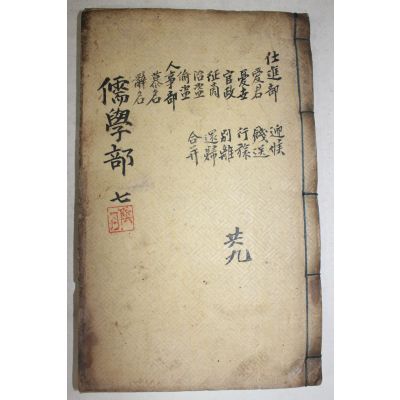 仕進部
愛君
憂世
官政
征商
治盜
偷盜
人事部
慕名
辭名
迎候
餞送
行旅
別離
還歸
合并
儒學部 七
共九